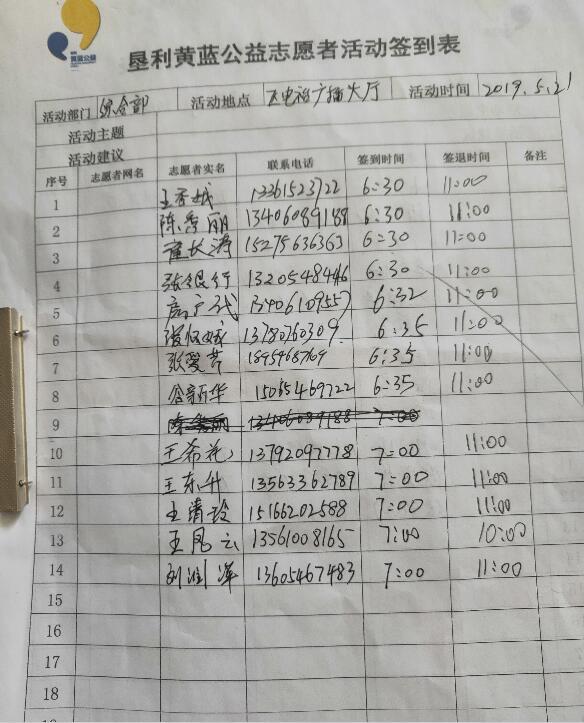 黄蓝公益
垦利黄蓝公益志愿者活动签到表
活动部门 综合部 活动地点 广播大厅 活动时间 2019.5.21
活动主题
活动建议
序号 志愿者网名 志愿者实名 联系电话 签到时间 签退时间 备注
1 6:30 11:00
2 陈秀丽 13406089188 6:30 11:00
3 崔长涛 15275636363 6:30 11:00
4 张银行 6:30 11:00
5 6:32 11:00
6 13780760309 6:35 11:00
7 张爱芳 6:35 11:00
8 新华 15065469722 6:35 11:00
9 陈秀丽 13406089188 7:00
10 王希花 13792097778 7:00 11:00
11 王东升 13563362789 7:00 11:00
12 王清玲 15166202588 7:00 11:00
13 王凤云 13561008165 7:00 10:00
14 刘洲洋 13605467483 7:00 11:00
15
16
17
18